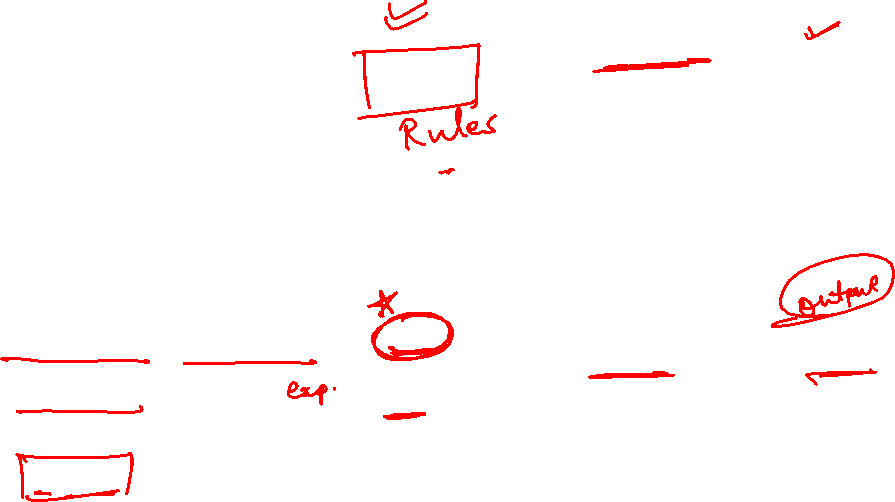 Rules
output
exp.